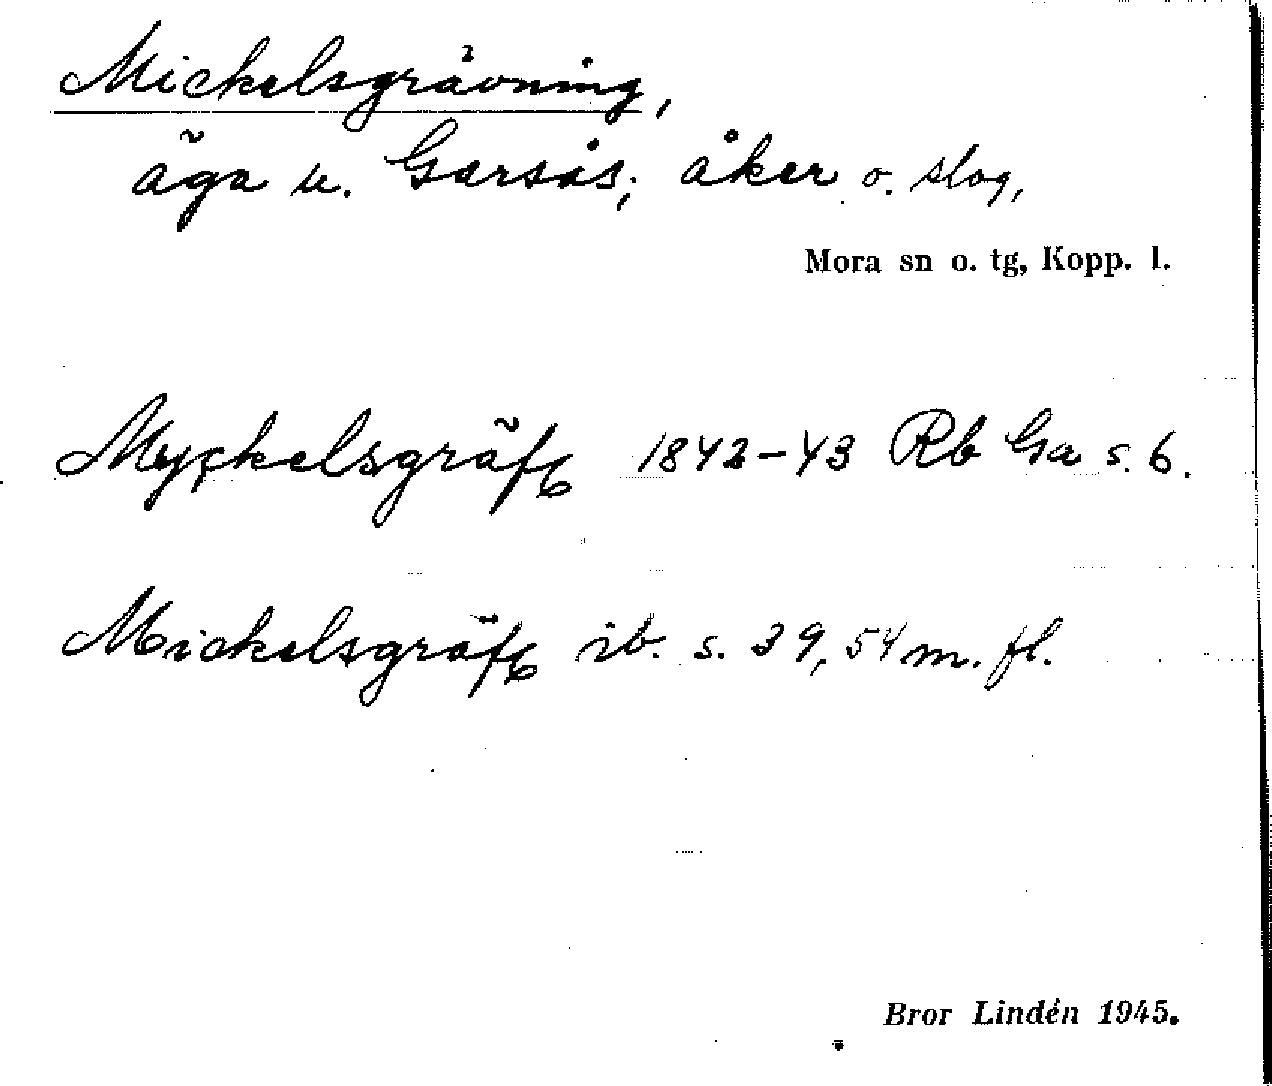 Mickelsgrävning,
äga u. Garsås; åker o. slog,
Mora sn o. tg, Kopp. l.
Myckelsgräft 1842-43 Rb Ga s. 6.
Mickelsgräft ib. s. 39, 54 m. fl.
Bror Lindén 1945.